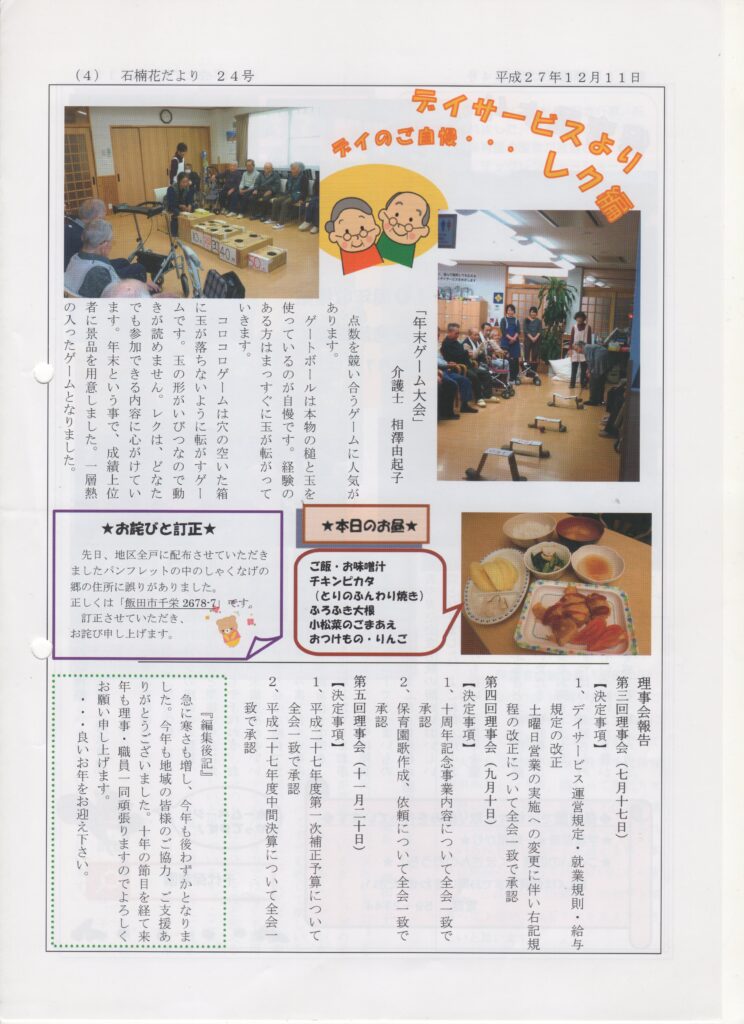 （4）　石楠花だより　24号
平成27年12月11日
デイサービスより
デイのご自慢・・・
レク編
「年末ゲーム大会」
介護士　相澤由起子
点数を競い合うゲームに人気が
あります。
ゲートボールは本物の槌と玉を
使っているのが自慢です。経験の
ある方はまっすぐに玉が転がって
いきます。
コロコロゲームは穴の空いた箱
に玉が落ちないように転がすゲー
ムです。玉の形がいびつなので動
きが読めません。レクは、どなた
でも参加できる内容に心がけてい
ます。年末という事で、成績上位
者に景品を用意しました。一層熱
の入ったゲームとなりました。
★お詫びと訂正★
先日、地区全戸に配布させていただき
ましたパンフレットの中のしゃくなげの
郷の住所に誤りがありました。
正しくは「飯田市千栄 2678-7」です。
訂正させていただき、
お詫び申し上げます。
★本日のお昼★
ご飯・お味噌汁
チキンピカタ
（とりのふんわり焼き）
ふろふき大根
小松菜のごまあえ
おつけもの・りんご
理事会報告
第三回理事会（七月十七日）
【決定事項】
1、デイサービス運営規定・就業規則・給与
規定の改正
土曜日営業の実施への変更に伴い右記規
程の改正について全会一致で承認
第四回理事会（九月十日）
【決定事項】
1、十周年記念事業内容について全会一致で
承認
2、保育園歌作成、依頼について全会一致で
承認
第五回理事会（十一月二十日）
【決定事項】
1、平成二十七年度第一次補正予算について
全会一致で承認
2、平成二十七年度中間決算について全会一
致で承認
『編集後記』
急に寒さも増し、今年も後わずかとなりま
した。今年も地域の皆様のご協力、ご支援あ
りがとうございました。十年の節目を経て来
年も理事・職員一同頑張りますのでよろしく
お願い申し上げます。
・・・良いお年をお迎え下さい。